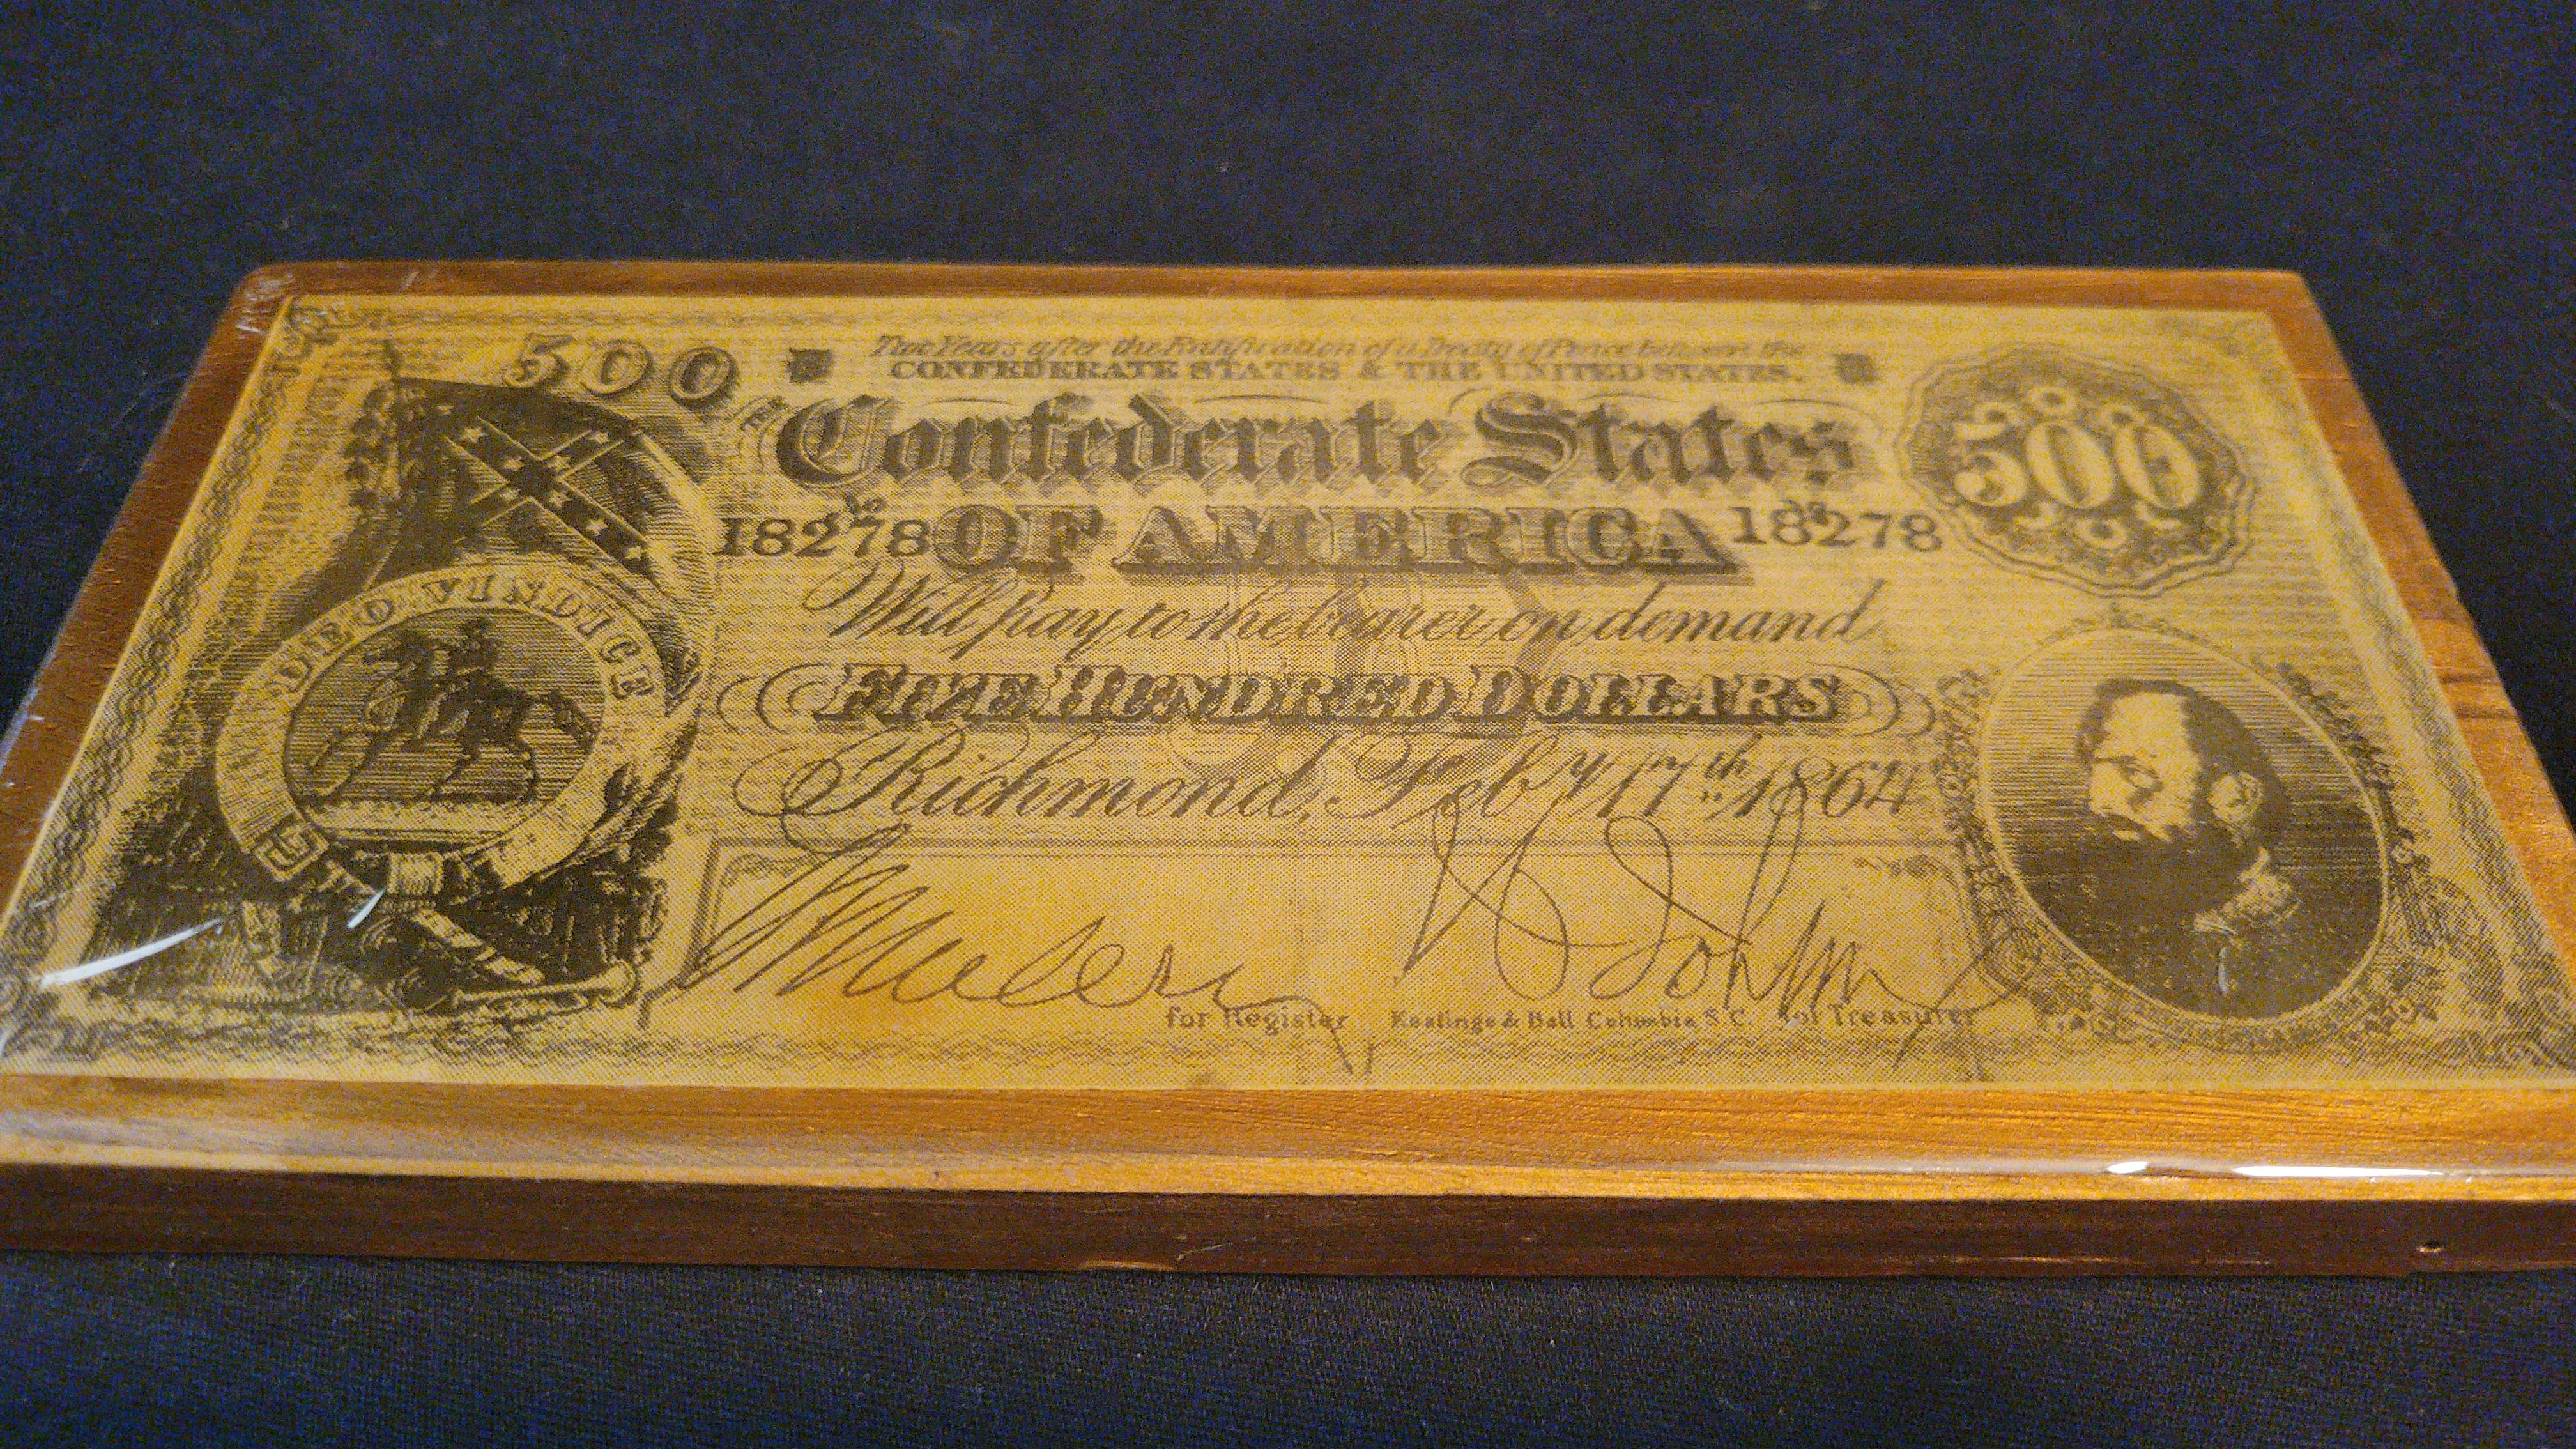 500
Two Years after the Ratification of a Treaty of Peace between the
CONFEDERATE STATES & THE UNITED STATES.
500
THE
Confederate States
No
18278
OF AMERICA
No
18278
DEO VINDICE
Will pay to the bearer on demand
FIVE HUNDRED DOLLARS
Richmond, Feby 17th 1864
for Register
Keatinge & Ball Columbia S.C.
for Treasurer